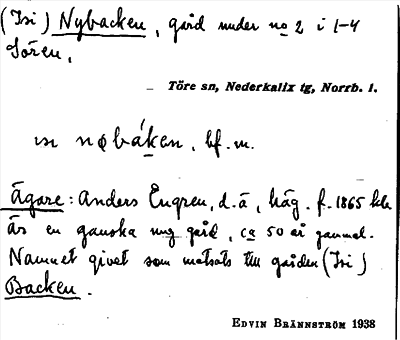 (Isi) Nybacken, gård under no 2 i 1-4
Sören.
Töre sn, Nederkalix tg, Norrb. l.
nøbáken, bf. m.
Ägare: Anders Engren, d.ä, häg. f. 1865 
är en ganska ung gård, ca 50 år gammal.
Namnet givet som motsats till gården (Isi)
Backen.
EDVIN BRÄNNSTRÖM 1938